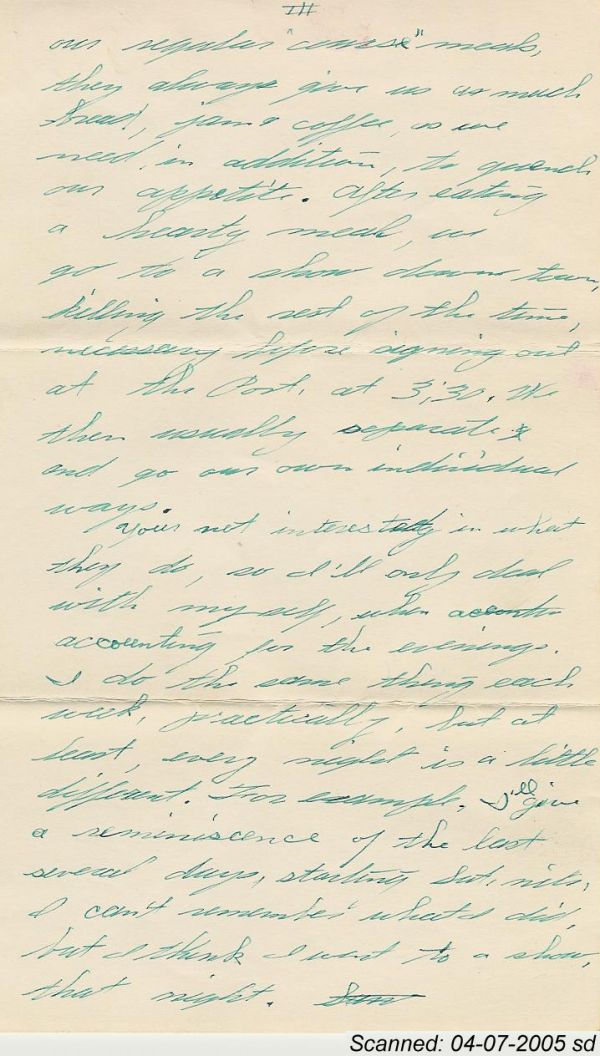 III
our regular "course" meals,
they always give us as much
bread, jam & coffee, as we
need, in addition, to quench
our appetite. After eating
a hearty meal, we
go to a show down town,
killing the rest of the time,
necessary before signing out
at the Post, at 3:30. We
then usually separate &
and go our own individual
ways.
Your not interested in what
they do, so I'll only deal
with myself, when accountin
accounting for the evenings.
I do the same thing each
week, practically, but at
least, every night is a little
different. For example, I'll give
a reminiscence of the last
several days, starting Sat. nite,
I can't remember what I did,
but I think I went to a show,
that night. Sun
Scanned: 04-07-2005 sd